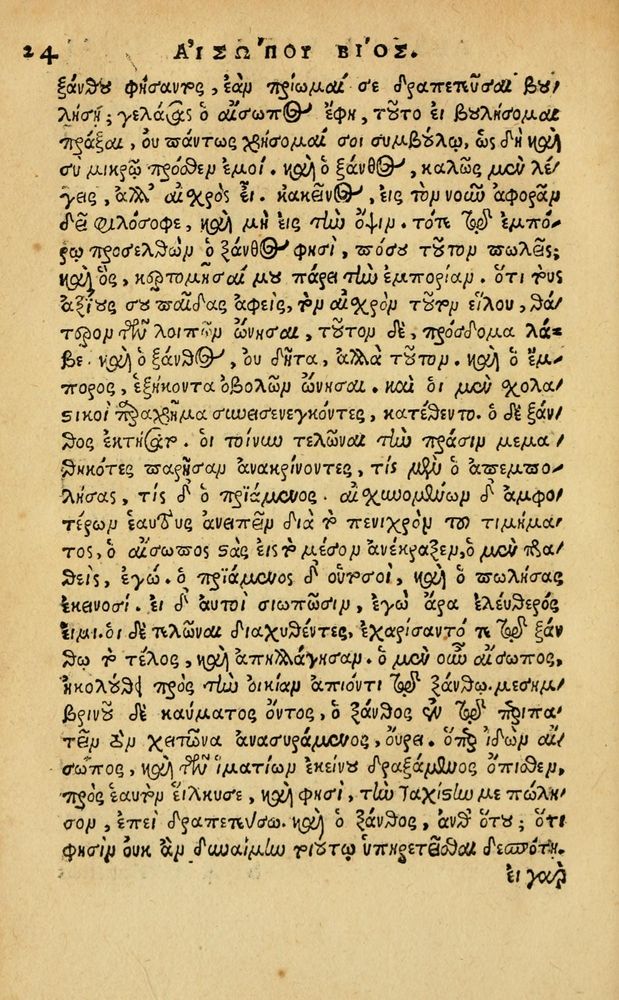 24 ΑἸΣΩ΄ΠΟΥ ΒΙ΄ΟΣ.
ξάνθου φήσαντος, ἐὰν πρίωμαί σε δραπετεῦσαι βου/
λήσῃ; γελάσας ὁ αἴσωπος ἔφη, τοῦτο εἰ βουλήσομαι
πρᾶξαι, οὐ πάντως χρήσομαί σοι συμβούλῳ, ὡς δὴ καὶ
σὺ μικρῷ πρόσθεν ἐμοί. καὶ ὁ ξάνθος, καλῶς μὲν λέ/
γεις, ἀλλ' αἰσχρὸς εἶ. κἀκεῖνος, εἰς τὸν νοῦν ἀφορᾶν
δεῖ φιλόσοφε, καὶ μὴ εἰς τὴν ὄψιν. τότε τῷ ἐμπό/
ρῳ προσελθὼν ὁ ξάνθος φησὶ, πόσου τοῦτον πωλεῖς;
καὶ ὃς, κερτομῆσαί μου πάρει τὴν ἐμπορίαν. ὅτι τοὺς
ἀξίους σου παῖδας ἀφεὶς, τὸν αἰσχρὸν τοῦτον εἵλου, θά/
τερον τῶν λοιπῶν ὤνησαι, τοῦτον δὲ, πρόσδομα λά=
βε. καὶ ὁ ξάνθος, οὐ δῆτα, ἀλλὰ τοῦτον. καὶ ὁ ἔμ/
πορος, ἑξήκοντα ὀβολῶν ὤνησαι. καὶ οἱ μὲν σχολα/
στικοὶ παραχρῆμα συνεισενεγκόντες, κατέθεντο. ὁ δὲ ξάν/
θος ἐκτήσατο. οἱ τοίνυν τελῶναι τὴν πρᾶσιν μεμα/
θηκότες παρῆσαν ἀνακρίνοντες, τίς μὲν ὁ ἀπεμπο/
λήσας, τίς δ' ὁ πριάμενος. αἰσχυνομένων δ' ἀμφο/
τέρων ἑαυτοὺς ἀνειπεῖν διὰ τὸ πενιχρὸν τοῦ τιμήμα/
τος, ὁ αἴσωπος στὰς εἰς τὸ μέσον ἀνέκραξεν, ὁ μὲν πρα/
θεὶς, ἐγώ. ὁ πριάμενος δ' οὑτοσὶ, καὶ ὁ πωλήσας
ἐκεινοσί. εἰ δ' αὐτοὶ σιωπῶσιν, ἐγὼ ἄρα ἐλεύθερός
εἰμι. οἱ δὲ τελῶναι διαχυθέντες, ἐχαρίσαντό τε τῷ ξάν
θῳ τὸ τέλος, καὶ ἀπηλλάγησαν. ὁ μὲν οὖν αἴσωπος,
ἠκολούθει πρὸς τὴν οἰκίαν ἀπιόντι τῷ ξάνθῳ. μεσημ/
βρινοῦ δὲ καύματος ὄντος, ὁ ξάνθος ἐν τῷ περιπα/
τεῖν τὸν χειτῶνα ἀνασυράμενος, οὔρει. ὅπερ ἰδὼν αἴ/
σωπος, καὶ τῶν ἱματίων ἐκείνου δραξάμενος ὄπισθεν,
πρὸς ἑαυτὸν εἵλκυσε, καὶ φησὶ, τὴν ταχίστην με πώλη/
σον, ἐπεὶ δραπετεύσω. καὶ ὁ ξάνθος, ἀνθ' ὅτου; ὅτι
φησὶν οὐκ ἂν δυναίμην τοιούτῳ ὑπηρετεῖσθαι δεσπότῃ.
εἰ γὰρ